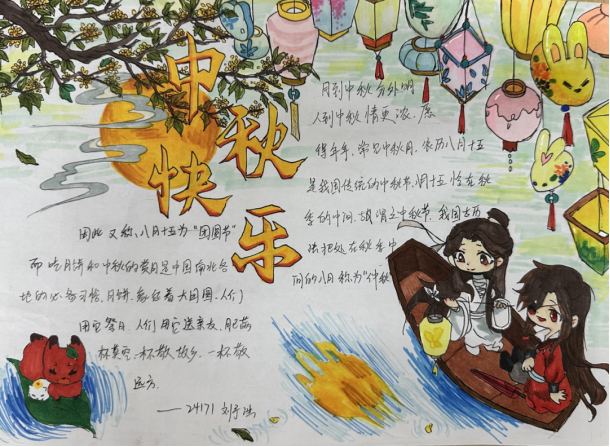 中秋快乐
月到中秋分外明
人到中秋情更浓,愿
得年年,常见中秋月,农历八月十五
是我国传统的中秋节,因十五恰在秋
季的中间,故谓之中秋节,我国古历
法把处在秋季中
间的八月称为“仲秋
因此又称八月十五为“团圆节”
而吃月饼和中秋的赏月是中国南北各
地的必备习俗,月饼象征着大团圆,人们
用它祭月,人们用它送亲友,
一杯敬故乡,一杯敬
远方.
——24171 刘